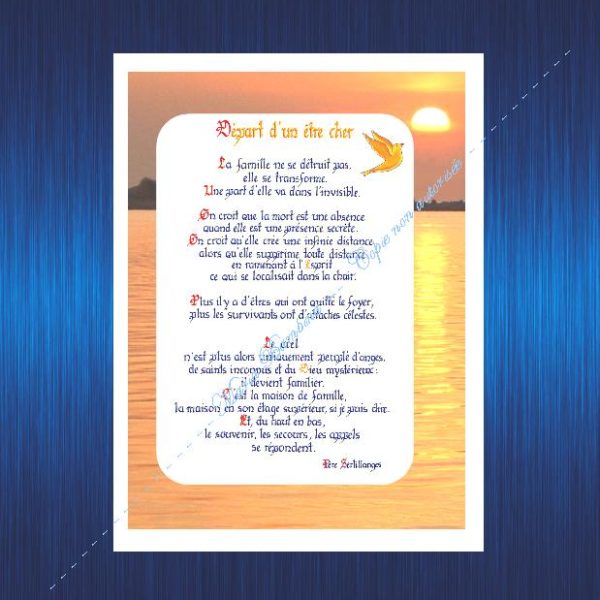 Départ d'un être cher
La famille ne se détruit pas,
elle se transforme.
Une part d'elle va dans l'invisible.
On croit que la mort est une absence
quand elle est une présence secrète.
On croit qu'elle crée une infinie distance
alors qu'elle supprime toute distance
en ramenant à l'Esprit
ce qui se localisait dans la chair.
Plus il y a d'êtres qui ont quitté le foyer,
plus les survivants ont d'attaches célestes.
Le ciel
n'est plus alors uniquement peuplé d'anges,
de saints inconnus et du Dieu mystérieux :
il devient familier.
C'est la maison de famille,
la maison en son étage supérieur, si je puis dire.
Et, du haut en bas,
le souvenir, les secours, les appels
se répondent.
Père Sertillanges
Copie non autorisée